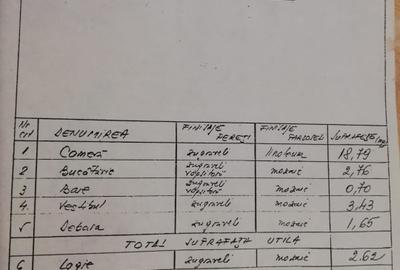 Nr crt DENUMIREA FINISAJE PEREȚI FINISAJE PARDOSELI SUPRAFEȚE (mp)
1 Cameră zugrăveli linoleum 18,79
2 Bucătărie zugrăveli vopsitorii mozaic 2,76
3 Baie zugrăveli vopsitorii mozaic 0,70
4 Vestibul zugrăveli mozaic 3,43
5 Debara zugrăveli mozaic 1,65
TOTAL SUPRAFAȚA UTILA
6 Logie zugrăveli mozaic 2.62